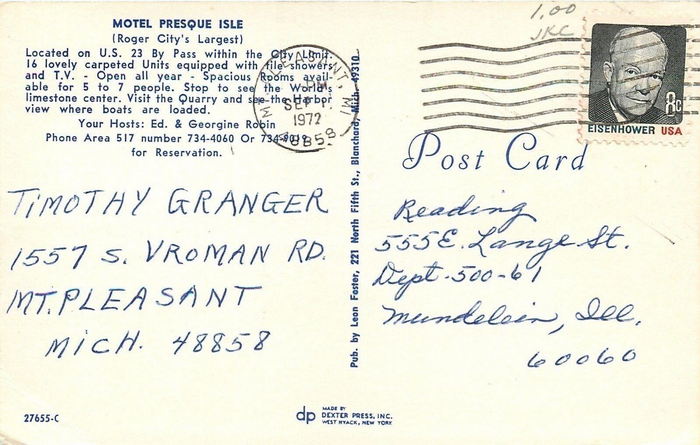 MOTEL PRESQUE ISLE
(Roger City's Largest)
Located on U.S. 23 By Pass within the City Limit.
16 lovely carpeted Units equipped with tile showers
and T.V. - Open all year - Spacious Rooms avail-
able for 5 to 7 people. Stop to see the World's
limestone center. Visit the Quarry and see the Harbor
view where boats are loaded.
Your Hosts: Ed. & Georgine Robin
Phone Area 517 number 734-4060 Or
for Reservation.
TIMOTHY GRANGER
1557 S. VROMAN RD.
MT. PLEASANT
MICH. 48858
27655-C
Pub. by Leon Foster, 221 North Fifth St., Blanchard, Mich. 49310
dp MADE BY
DEXTER PRESS, INC.
WEST NYACK, NEW YORK
MT. PLEASANT, MI
PM
SEP
1972
48858
1.00
JKC
EISENHOWER USA
8c
Post Card
Reading
555 E. Lange St.
Dept-500-61
Mundelein, Ill.
60060